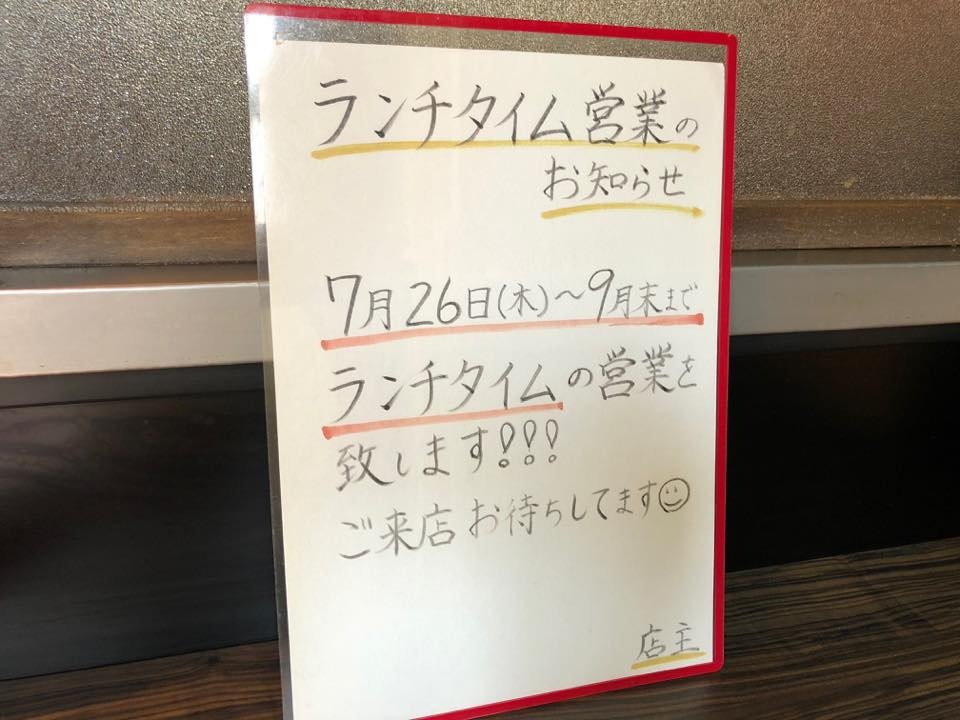 ランチタイム営業の
お知らせ
7月26日(木)〜9月末まで
ランチタイムの営業を
致します!!!
ご来店お待ちしてます☺
店主